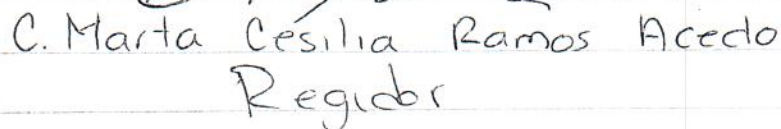 C. Marta Cesilia Ramos Acedo
Regidor